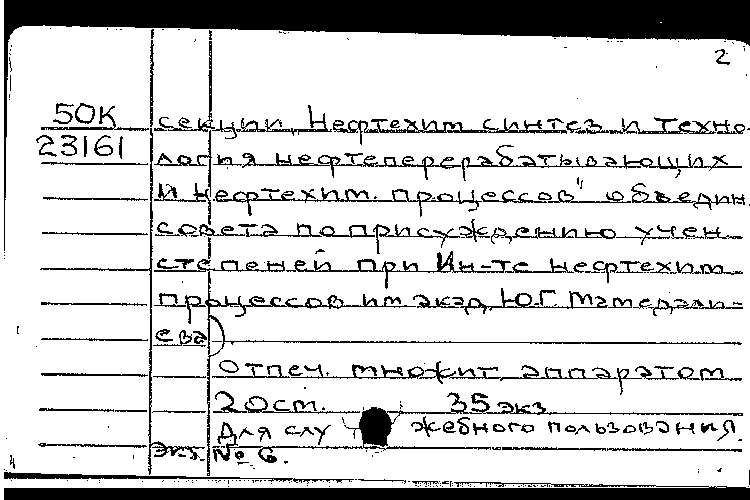 2
50К
23161
секции „Нефтехим синтез и техно-
логия нефтеперерабатывающих
и нефтехим. процессов" объедин.
совета по присуждению учен.
степеней при Ин-те нефтехим.
процессов им акад. Ю.Г. Мамедали-
ева).
Отпеч. множит. аппаратом
20 ст. 35 экз
Для служебного пользования.
Экз. № 6.